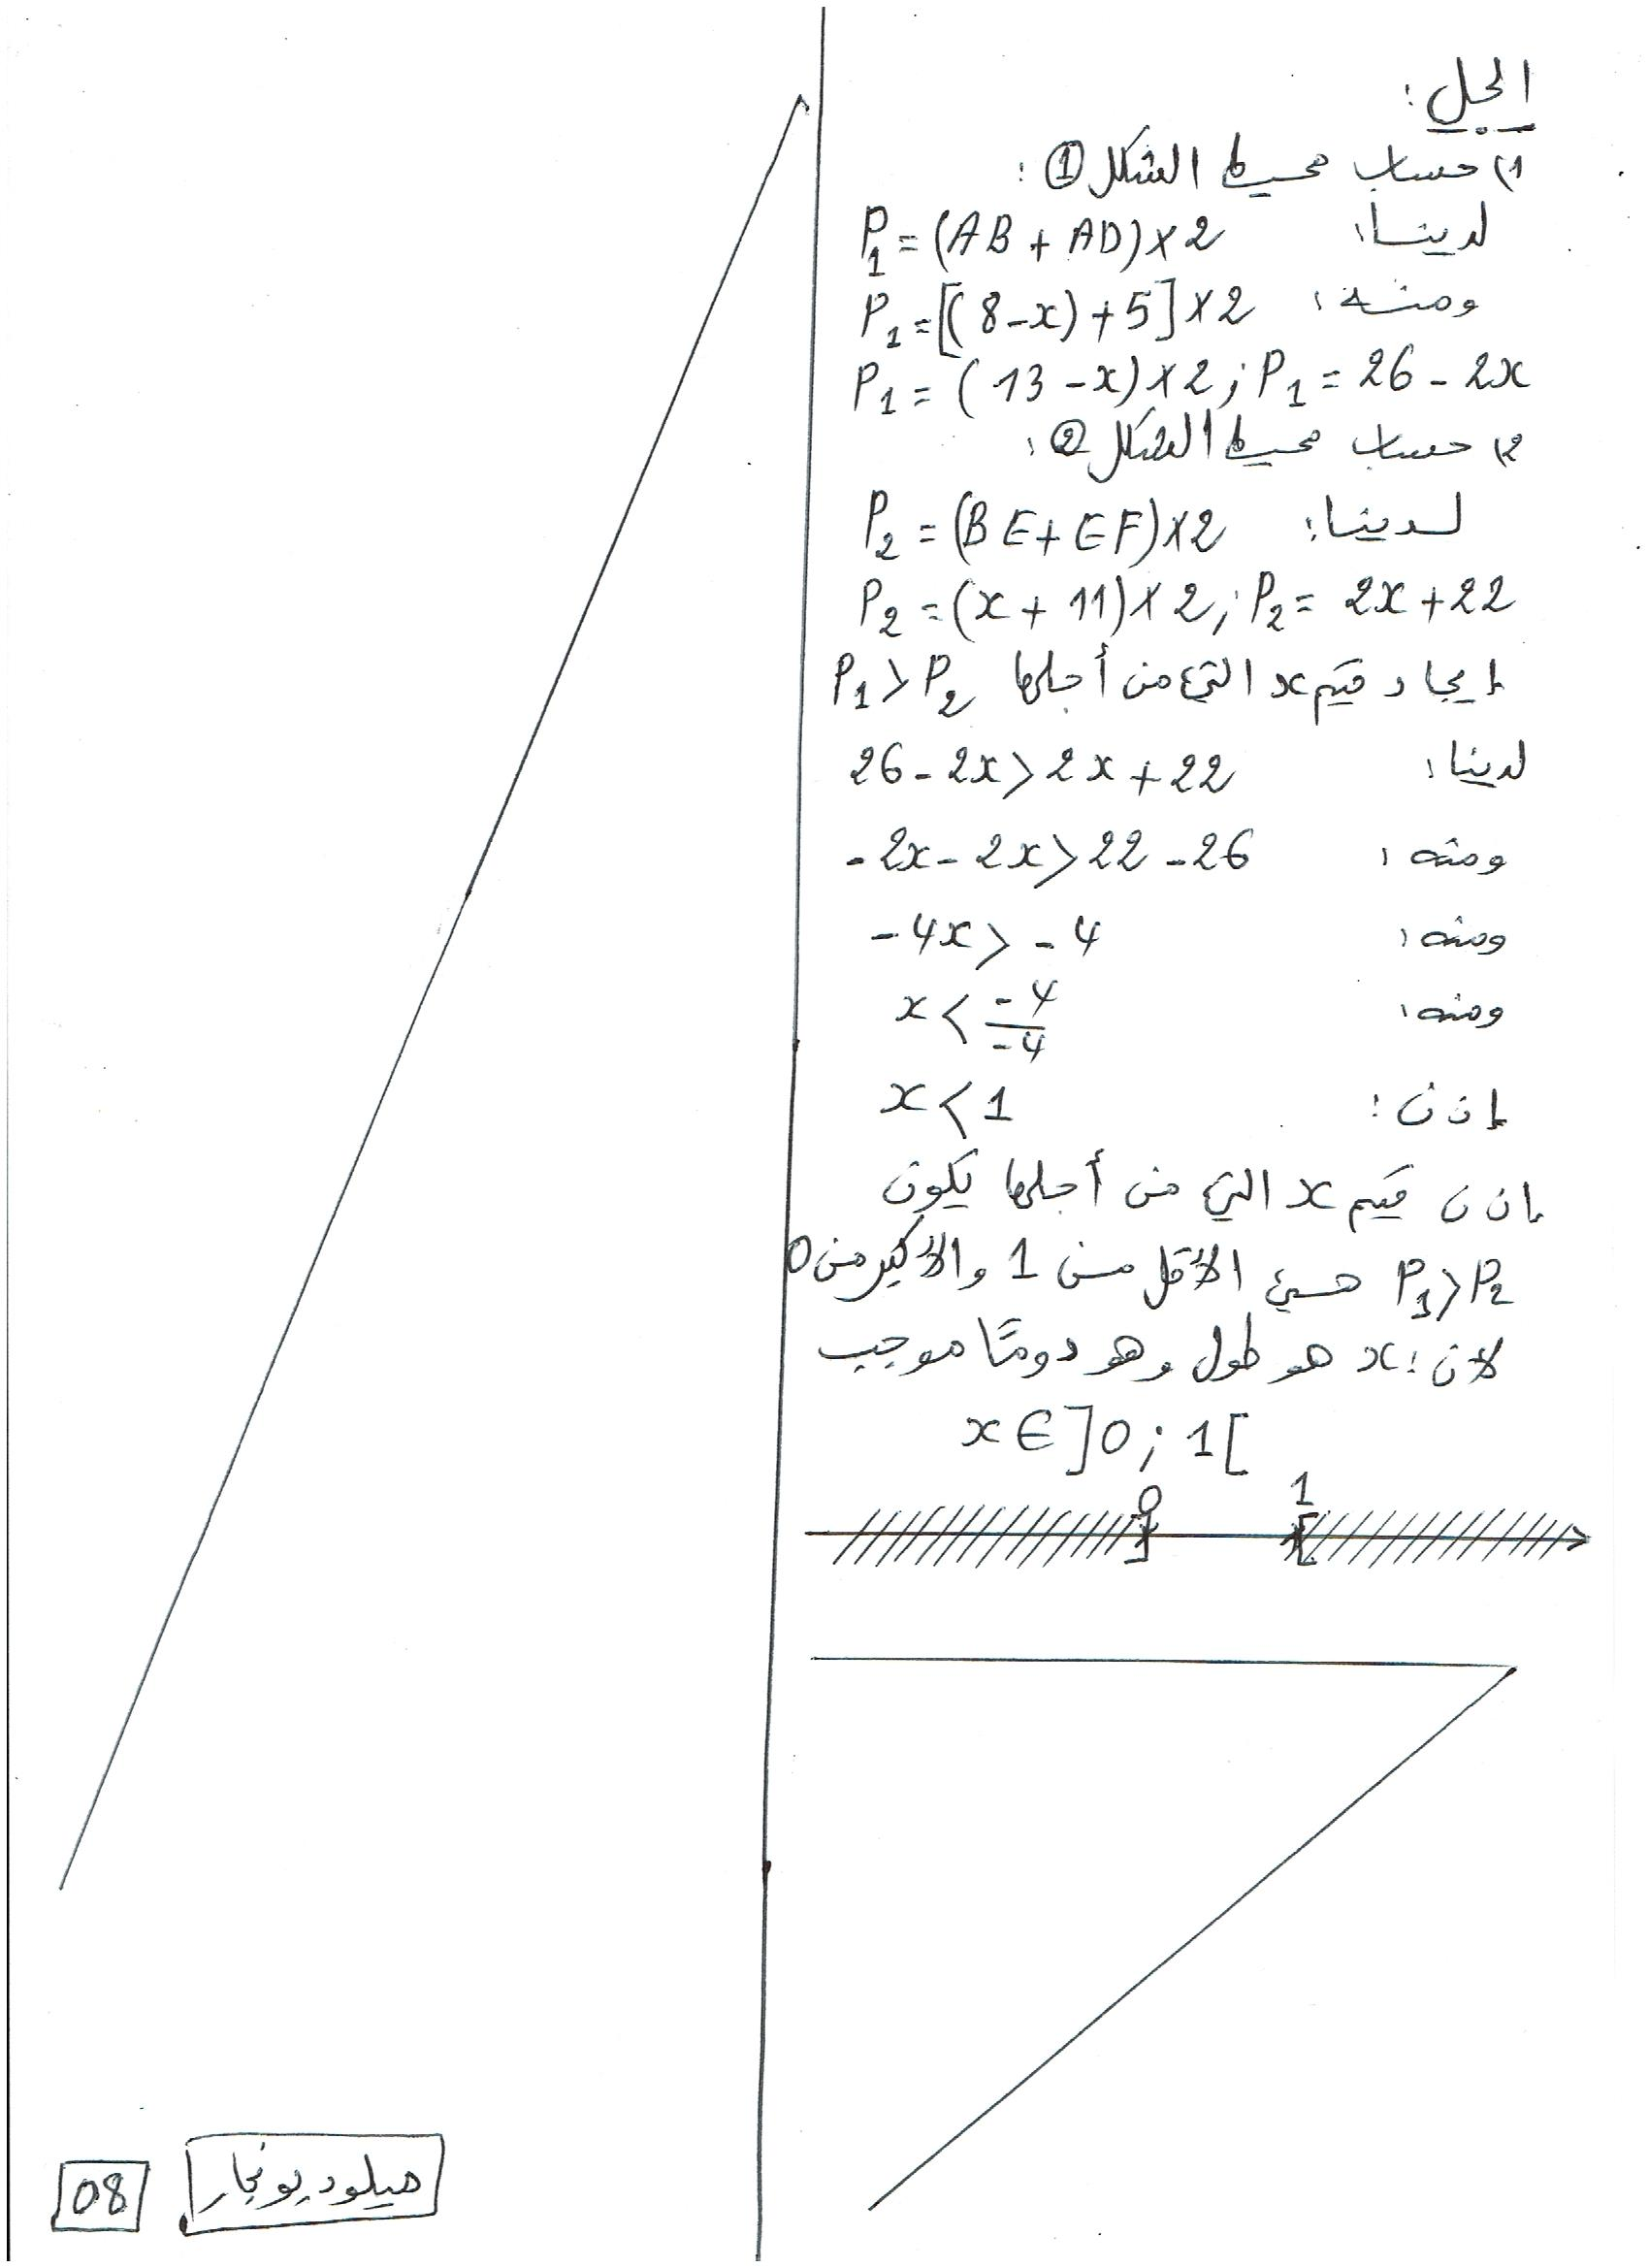 الحل :
1) حساب محيط الشكل ① :
لدينا: P₁ = (AB + AD) × 2
ومنه: P₁ = [(8 - x) + 5] × 2
P₁ = (13 - x) × 2 ; P₁ = 26 - 2x
2) حساب محيط الشكل ② :
لدينا: P₂ = (BE + EF) × 2
P₂ = (x + 11) × 2 ; P₂ = 2x + 22
إيجاد قيم x التي من أجلها P₁ > P₂
لدينا: 26 - 2x > 2x + 22
ومنه: - 2x - 2x > 22 - 26
ومنه: - 4x > - 4
ومنه: x < -4/-4
إذن : x < 1
إذن قيم x التي من أجلها يكون
P₁ > P₂ هي الأقل من 1 والأكبر من 0
لأن : x هو طول وهو دومًا موجب
x ∈ ]0 ; 1[
0 1
ميلود بونجار
08